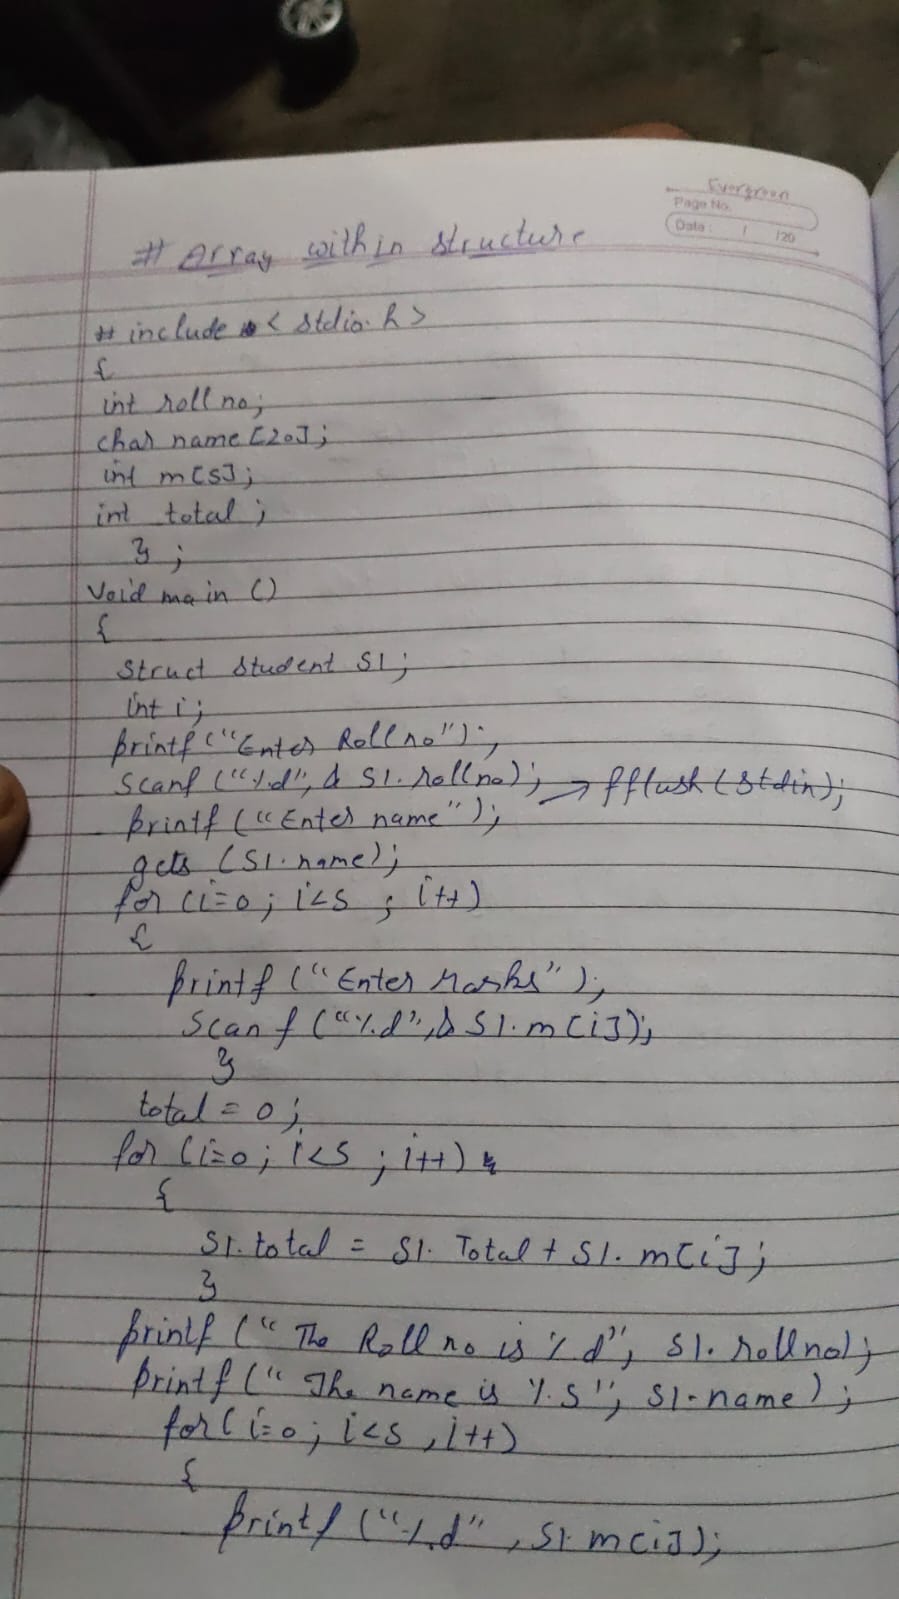 Evergreen
Page No.
Date: / /20
# Array within structure
# include < stdio.h >
{
int roll no;
char name [20];
int m[5];
int total ;
} ;
Void main ()
{
Struct student S1;
int i;
printf ("Enter Roll no");
Scanf ("%d", & S1. roll no); → fflush (stdin);
printf ("Enter name");
gets (S1. name);
for (i=0; i<5 ; i++)
{
printf ("Enter Marks");
Scan f ("%d", & S1. m [i]);
}
total = 0;
for (i=0; i<5 ; i++)
{
S1. total = S1. Total + S1. m[i];
}
printf (" The Roll no is %d", S1. roll no);
printf (" The name is %s", S1-name);
for (i=0; i<5 , i++)
{
printf ("%d" , S1. m[i]);